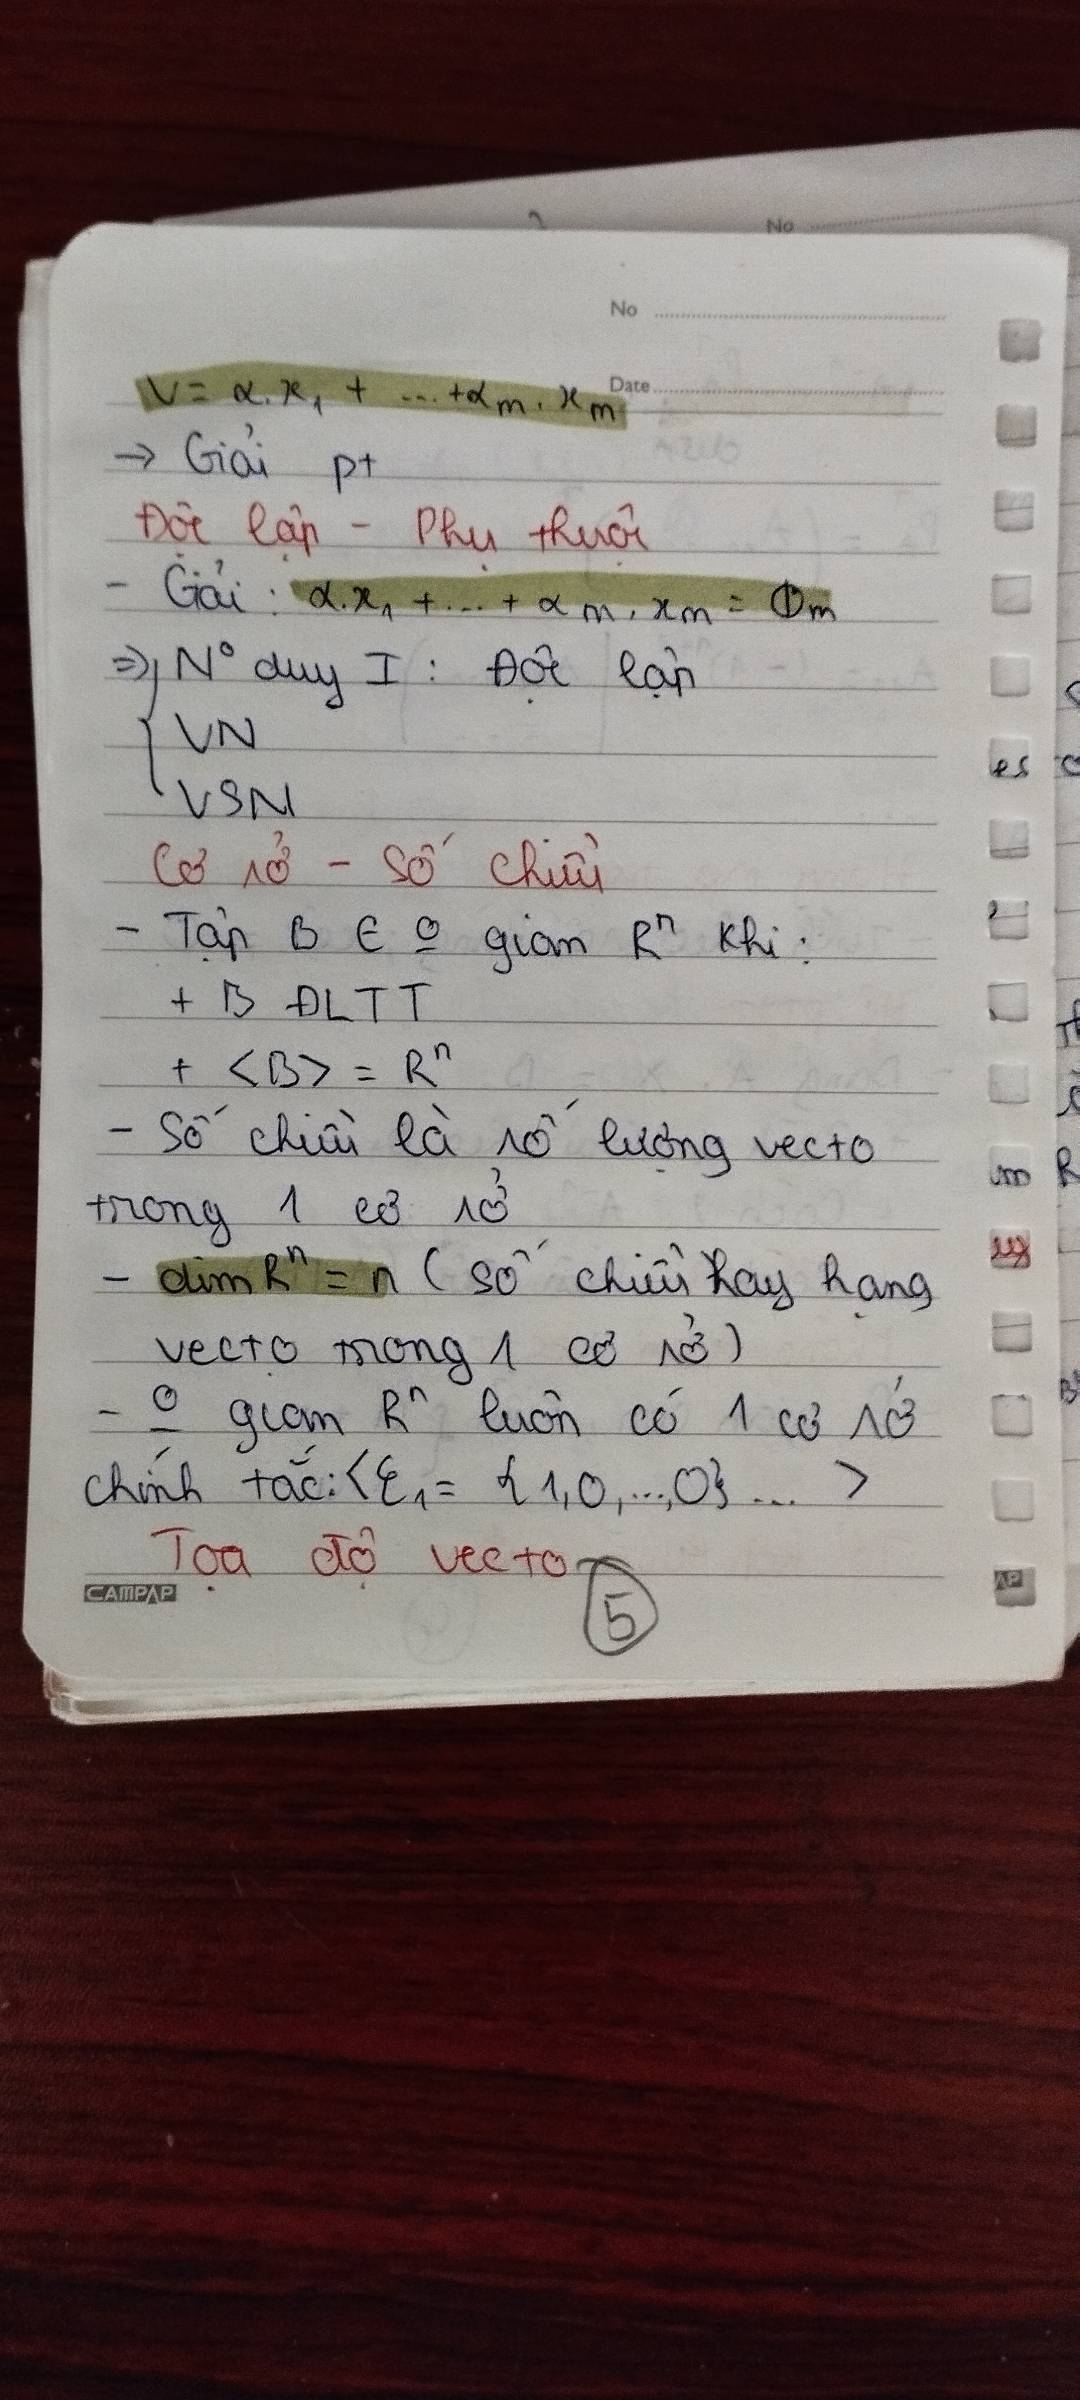 No
No
Date
V = α.x₁ + ... + αm.xm
→ Giải pt
Độc lập - Phụ thuộc
- Giải: α.x₁ + ... + αm.xm = 𝕆m
=> N° duy I : Độc lập
VN
VSN
Cơ sở - Số chiều
- Tập B ∈ O gian Rⁿ khi:
+ B ĐLTT
+ <B> = Rⁿ
- Số chiều là số lượng vecto
trong 1 cơ sở
- dim Rⁿ = n (số chiều hay hạng
vecto trong 1 cơ sở)
- O gian Rⁿ luôn có 1 cơ sở
chính tắc: <ε₁ = {1,0,...,0} ... >
Tọa độ vecto
CAMPAP
5